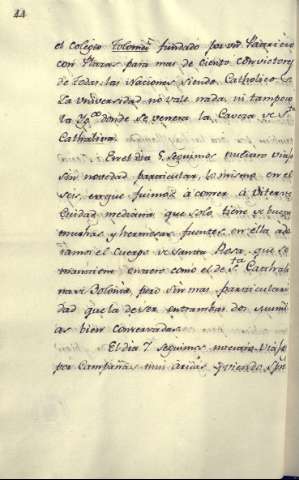 44
el Colegio Tolomei fundado por un Patricio
con Plazas para mas de ciento convictores
de todas las Naciones siendo Catholicos
La Universidad no vale nada, ni tampoco
la Yg.ª donde se venera la Caveza de S.ta
Cathalina.
En el dia 5 seguimos nuestro viaje
sin novedad particular, lo mismo en el
seis, en que fuimos à comer à Viterbo
Ciudad mediana que solo tiene de bueno
muchas y hermosas fuentes, en ella ado
ramos el Cuerpo de Santa Rosa, que se
mantiene entero como el de S.ta Cathali
na de Bolonia, pero sin mas particulari
dad que la de ser entrambas dos Mumi
as bien conservadas.
El dia 7 seguimos nuestro viaje
por Campañas mui aridas, y